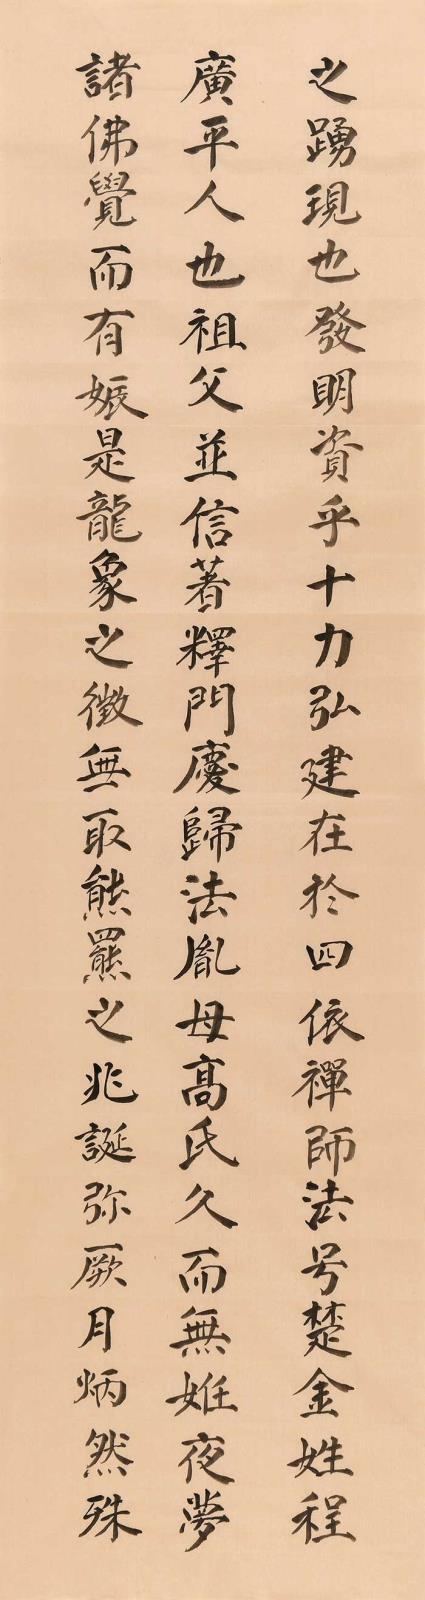 之踴現也發明資乎十力弘建在於四依禪師法号楚金姓程
廣平人也祖父並信著釋門慶歸法胤母高氏久而無姙夜夢
諸佛覺而有娠是龍象之徵無取熊羆之兆誕弥厥月炳然殊